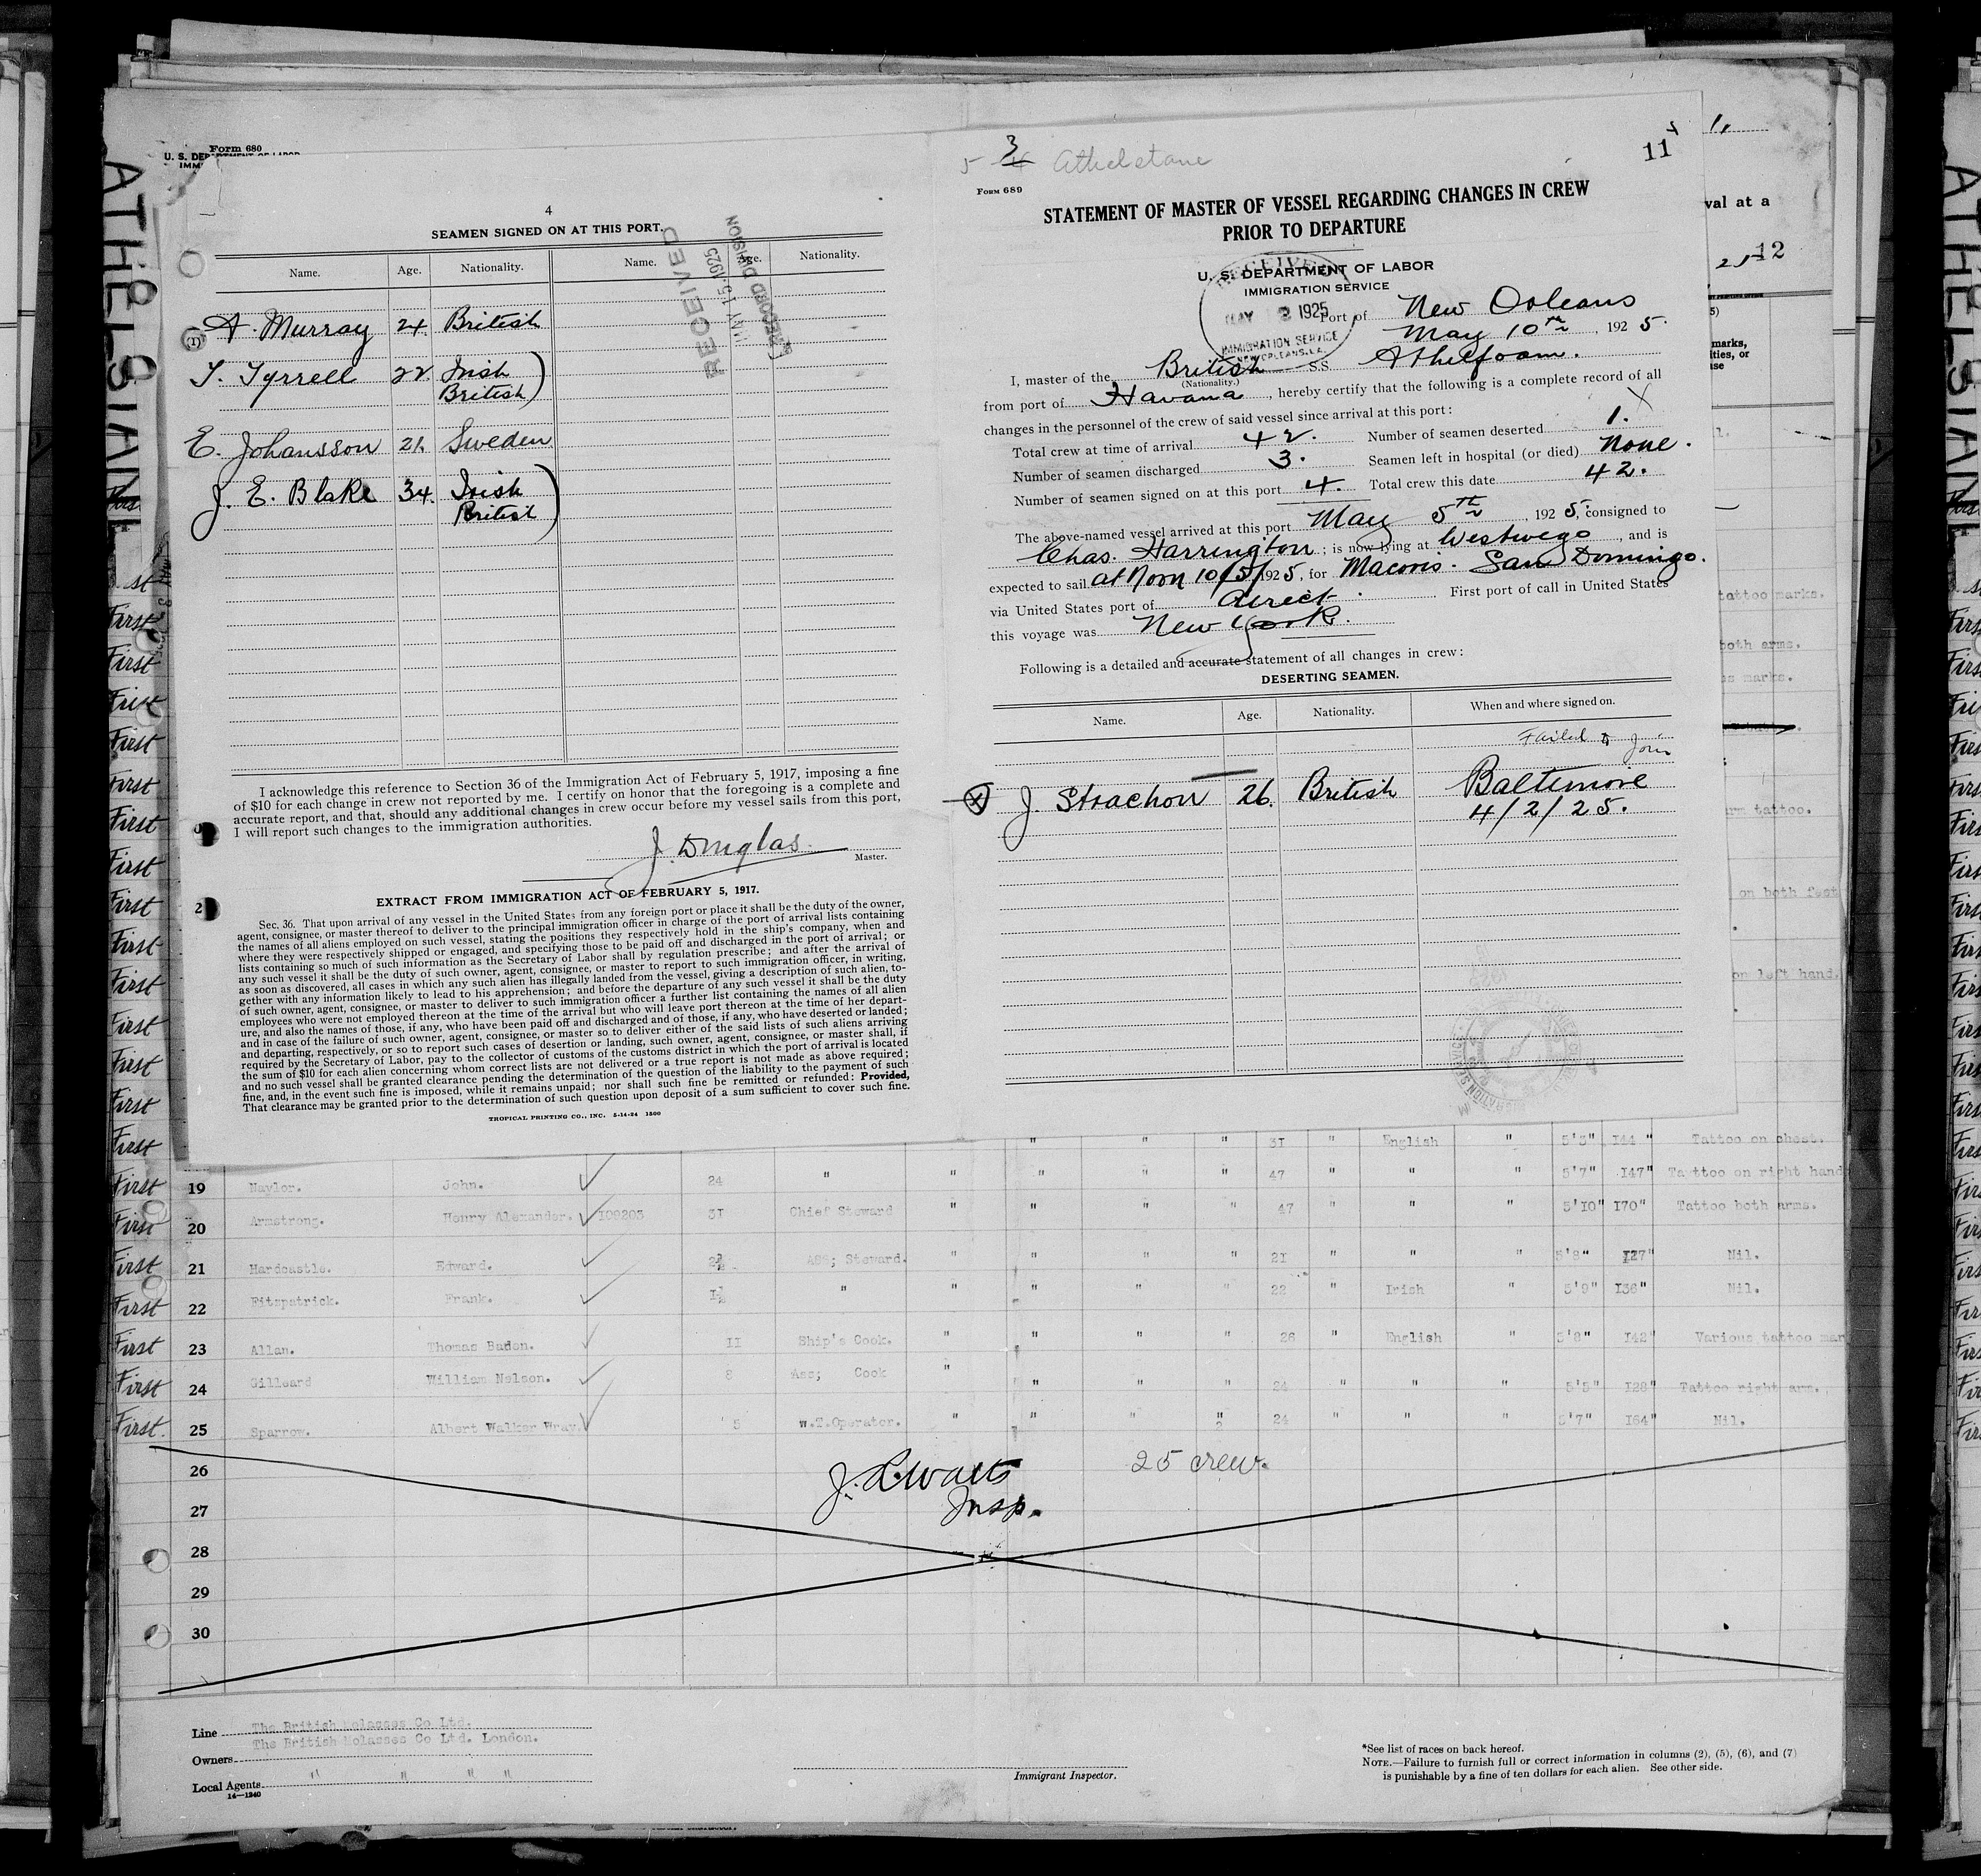 Form 680
U. S. DEPARTMENT OF LABOR
ATHELSTANE
4
SEAMEN SIGNED ON AT THIS PORT.
Name. Age. Nationality. Name. Age. Nationality.
RECEIVED
MAY 15 1925
RECORD DIVISION
(1) A. Murray 24. British
T. Tyrrell 22 Irish
British)
E. Johansson 21. Sweden
J. E. Blake 34. Irish
British)
I acknowledge this reference to Section 36 of the Immigration Act of February 5, 1917, imposing a fine
of $10 for each change in crew not reported by me. I certify on honor that the foregoing is a complete and
accurate report, and that, should any additional changes in crew occur before my vessel sails from this port,
I will report such changes to the immigration authorities.
J. Douglas.
Master.
EXTRACT FROM IMMIGRATION ACT OF FEBRUARY 5, 1917.
Sec. 36. That upon arrival of any vessel in the United States from any foreign port or place it shall be the duty of the owner,
agent, consignee, or master thereof to deliver to the principal immigration officer in charge of the port of arrival lists containing
the names of all aliens employed on such vessel, stating the positions they respectively hold in the ship's company, when and
where they were respectively shipped or engaged, and specifying those to be paid off and discharged in the port of arrival; or
lists containing so much of such information as the Secretary of Labor shall by regulation prescribe; and after the arrival of
any such vessel it shall be the duty of such owner, agent, consignee, or master to report to such immigration officer, in writing,
as soon as discovered, all cases in which any such alien has illegally landed from the vessel, giving a description of such alien, to-
gether with any information likely to lead to his apprehension; and before the departure of any such vessel it shall be the duty
of such owner, agent, consignee, or master to deliver to such immigration officer a further list containing the names of all alien
employees who were not employed thereon at the time of the arrival but who will leave port thereon at the time of her depart-
ure, and also the names of those, if any, who have been paid off and discharged and of those, if any, who have deserted or landed;
and in case of the failure of such owner, agent, consignee, or master so to deliver either of the said lists of such aliens arriving
and departing, respectively, or so to report such cases of desertion or landing, such owner, agent, consignee, or master shall, if
required by the Secretary of Labor, pay to the collector of customs of the customs district in which the port of arrival is located
the sum of $10 for each alien concerning whom correct lists are not delivered or a true report is not made as above required;
and no such vessel shall be granted clearance pending the determination of the question of the liability to the payment of such
fine, and, in the event such fine is imposed, while it remains unpaid; nor shall such fine be remitted or refunded: Provided,
That clearance may be granted prior to the determination of such question upon deposit of a sum sufficient to cover such fine.
TROPICAL PRINTING CO., INC. 5-14-24 1500
5 3 Athelstane
11
Form 689
STATEMENT OF MASTER OF VESSEL REGARDING CHANGES IN CREW
PRIOR TO DEPARTURE
U. S. DEPARTMENT OF LABOR
IMMIGRATION SERVICE
RECEIVED
MAY 12 1925
IMMIGRATION SERVICE
NEW ORLEANS, LA.
Port of New Orleans
May 10th, 1925.
I, master of the British S.S. Athelfoam.
(Nationality.)
from port of Havana, hereby certify that the following is a complete record of all
changes in the personnel of the crew of said vessel since arrival at this port:
Total crew at time of arrival 42. Number of seamen deserted 1. X
Number of seamen discharged 3. Seamen left in hospital (or died) None.
Number of seamen signed on at this port 4. Total crew this date 42.
The above-named vessel arrived at this port May 5th, 1925, consigned to
Chas. Harrington; is now lying at Westwego, and is
expected to sail at Noon 10/5/1925, for Macoris. San Domingo.
via United States port of direct. First port of call in United States
this voyage was New York.
Following is a detailed and accurate statement of all changes in crew:
DESERTING SEAMEN.
Name. Age. Nationality. When and where signed on.
Failed to Join
(X) J. Strachon 26. British Baltimore
4/2/25.
val at a
12
marks,
tattoo marks.
both arms.
marks.
tattoo.
on both feet
on left hand.
First
" " " 31 " English " 5'5" 144" Tattoo on chest.
First 19 Naylor. John. 24 " " " " " 47 " " " 5'7" 147" Tattoo on right hand
First 20 Armstrong. Henry Alexander. 109203 31 Chief Steward " " " " 47 " " " 5'10" 170" Tattoo both arms.
First 21 Hardcastle. Edward. 2½ Ass; Steward. " " " " 21 " " " 5'8" 127" Nil.
First 22 Fitzpatrick. Frank. 1½ " " " " " 22 " Irish " 5'9" 136" Nil.
First 23 Allan. Thomas Baden. 11 Ship's Cook. " " " " 26 " English " 5'8" 142" Various tattoo mar
First 24 Gilleard William Nelson. 8 Ass; Cook " " " " 24 " " " 5'5" 128" Tattoo right arm.
First. 25 Sparrow. Albert Walker Wray. 5 W.T.Operator. " " " " 24 " " " 5'7" 164" Nil.
26
J. L. Watts 25 crew.
Insp.
27
28
29
30
Line The British Molasses Co Ltd.
Owners The British Molasses Co Ltd. London.
Local Agents " " " "
14—1240
Immigrant Inspector.
*See list of races on back hereof.
NOTE.—Failure to furnish full or correct information in columns (2), (5), (6), and (7)
is punishable by a fine of ten dollars for each alien. See other side.